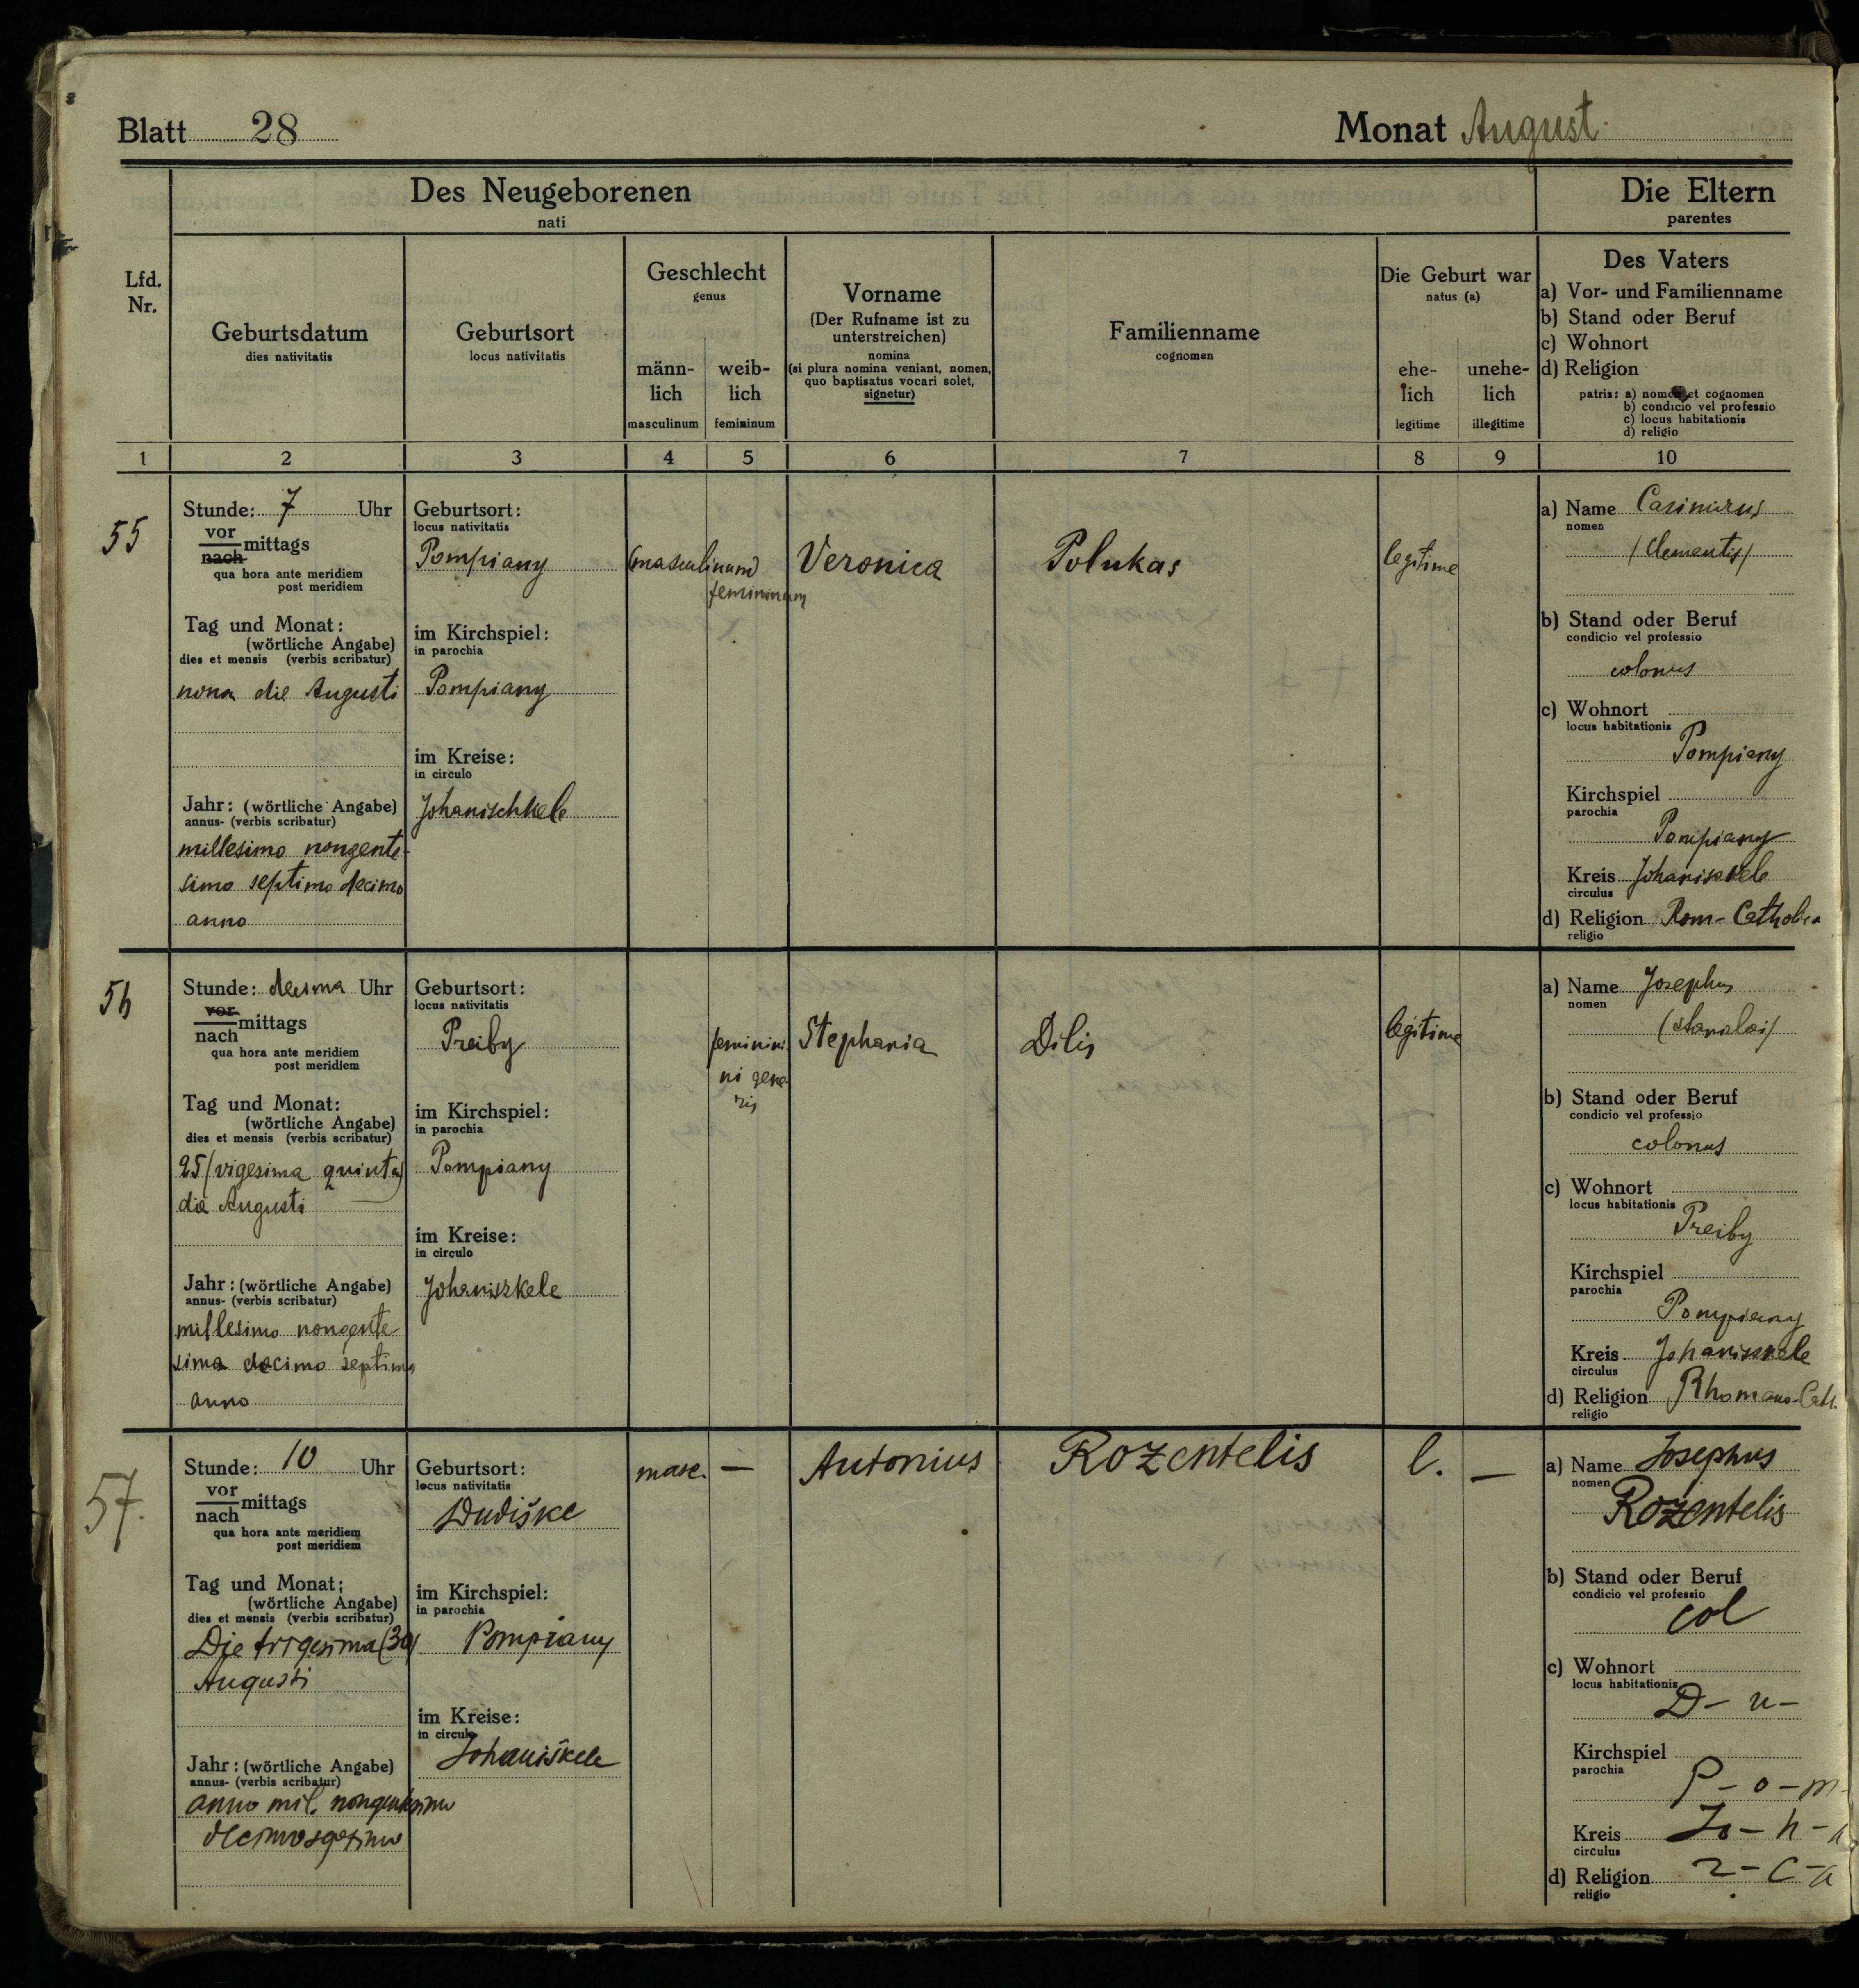 Blatt 28
Monat August
Des Neugeborenen
nati
Die Eltern
parentes
Lfd.
Nr.
Geburtsdatum
dies nativitatis
Geburtsort
locus nativitatis
Geschlecht
genus
männ-
lich
masculinum
weib-
lich
femininum
Vorname
(Der Rufname ist zu
unterstreichen)
nomina
(si plura nomina veniant, nomen,
quo baptisatus vocari solet,
signetur)
Familienname
cognomen
Die Geburt war
natus (a)
ehe-
lich
legitime
unehe-
lich
illegitime
Des Vaters
a) Vor- und Familienname
b) Stand oder Beruf
c) Wohnort
d) Religion
patris: a) nomen et cognomen
b) condicio vel professio
c) locus habitationis
d) religio
1 2 3 4 5 6 7 8 9 10
55
Stunde: 7 Uhr
vor
nach mittags
qua hora ante meridiem
post meridiem
Tag und Monat:
(wörtliche Angabe)
dies et mensis (verbis scribatur)
nona die Augusti
Jahr: (wörtliche Angabe)
annus- (verbis scribatur)
millesimo nongente-
simo septimo decimo
anno
Geburtsort:
locus nativitatis
Pompiany
im Kirchspiel:
in parochia
Pompiany
im Kreise:
in circulo
Johanischkele
(masculinum)
femininum
Veronica
Polukas
legitime
a) Name Casimirus
nomen
/Clementis/
b) Stand oder Beruf
condicio vel professio
colonus
c) Wohnort
locus habitationis
Pompiany
Kirchspiel
parochia
Pompiany
Kreis Johaniszkele
circulus
d) Religion Rom-Catholica
religio
56
Stunde: decima Uhr
vor
nach mittags
qua hora ante meridiem
post meridiem
Tag und Monat:
(wörtliche Angabe)
dies et mensis (verbis scribatur)
25 (vigesima quinta)
die Augusti
Jahr: (wörtliche Angabe)
annus- (verbis scribatur)
millesimo nongente
simo decimo septimo
anno
Geburtsort:
locus nativitatis
Preiby
im Kirchspiel:
in parochia
Pompiany
im Kreise:
in circulo
Johaniszkele
feminini
ni gene
ris
Stephania
Dilis
legitime
a) Name Josephus
nomen
b) Stand oder Beruf
condicio vel professio
colonus
c) Wohnort
locus habitationis
Preiby
Kirchspiel
parochia
Pompiany
Kreis Johaniszkele
circulus
d) Religion Rhomano-Cath.
religio
57.
Stunde: 10 Uhr
vor
nach mittags
qua hora ante meridiem
post meridiem
Tag und Monat:
(wörtliche Angabe)
dies et mensis (verbis scribatur)
Die trigesima (30)
Augusti
Jahr: (wörtliche Angabe)
annus- (verbis scribatur)
anno mil. nongentesimo
Geburtsort:
locus nativitatis
Dudiške
im Kirchspiel:
in parochia
Pompiany
im Kreise:
in circulo
Johaniškele
masc. —
Antonius
Rozentelis
l. —
a) Name Josephus
nomen
Rozentelis
b) Stand oder Beruf
condicio vel professio
col
c) Wohnort
locus habitationis
D- u-
Kirchspiel
parochia
P-o-m-
Kreis Jo-h-
circulus
d) Religion r-c-a
religio